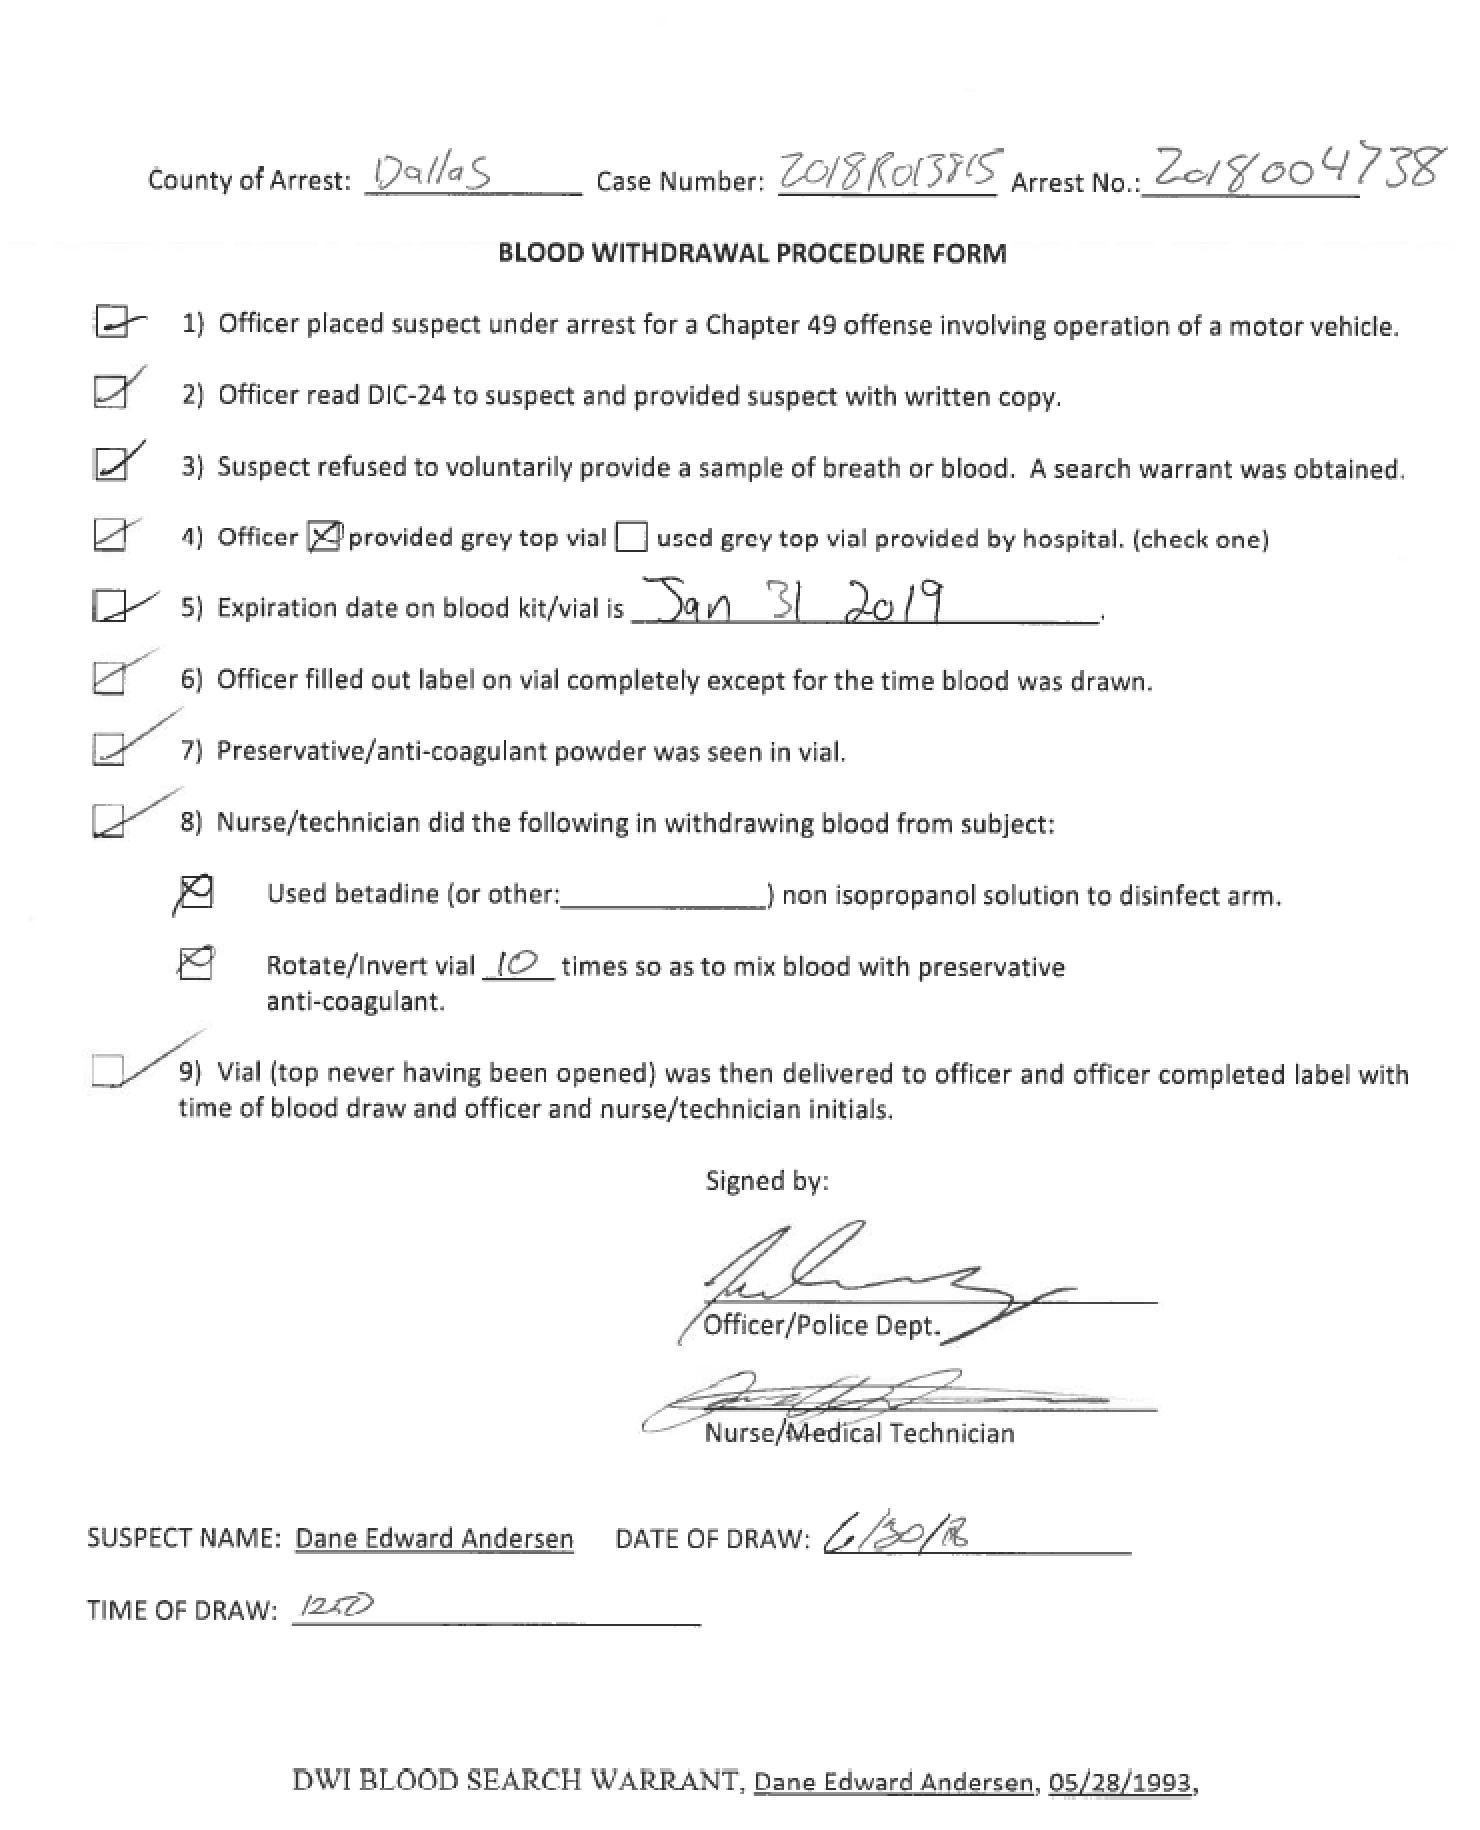 County of Arrest: Dallas Case Number: 2018R013815 Arrest No.: 2018004738
BLOOD WITHDRAWAL PROCEDURE FORM
1) Officer placed suspect under arrest for a Chapter 49 offense involving operation of a motor vehicle.
2) Officer read DIC-24 to suspect and provided suspect with written copy.
3) Suspect refused to voluntarily provide a sample of breath or blood. A search warrant was obtained.
4) Officer provided grey top vial used grey top vial provided by hospital. (check one)
5) Expiration date on blood kit/vial is Jan 31 2019.
6) Officer filled out label on vial completely except for the time blood was drawn.
7) Preservative/anti-coagulant powder was seen in vial.
8) Nurse/technician did the following in withdrawing blood from subject:
Used betadine (or other: ) non isopropanol solution to disinfect arm.
Rotate/Invert vial 10 times so as to mix blood with preservative
anti-coagulant.
9) Vial (top never having been opened) was then delivered to officer and officer completed label with
time of blood draw and officer and nurse/technician initials.
Signed by:
Officer/Police Dept.
Nurse/Medical Technician
SUSPECT NAME: Dane Edward Andersen DATE OF DRAW: 6/30/18
TIME OF DRAW: 1250
DWI BLOOD SEARCH WARRANT, Dane Edward Andersen, 05/28/1993,